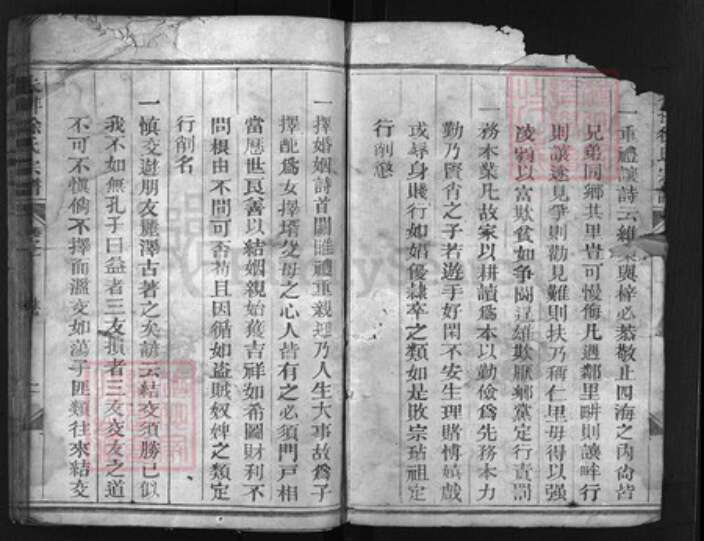 一重禮讓詩云維桑與梓必恭敬止四海之內尙皆
兄弟同鄉共里豈可慢侮凡遇鄰里畊則讓畔行
則讓途見爭則勸見難則扶乃稱仁里毋得以強
凌弱以富欺貧如爭鬪逞雄欺壓鄉黨定行責罰
一務本業凡故家以耕讀爲本以勤儉爲先務本力
勤乃賢肖之子若遊手好閑不安生理賭愽嬉戲
或辱身賤行如娼優隸卒之類如是敗宗玷祖定
行削懲
一擇婚姻詩首關睢禮重親迎乃人生大事故爲子
擇配爲女擇壻父母之心人皆有之必須門戸相
當歷世良善以結姻親始獲吉祥如希圖財利不
問根由不問可否苟且因循如盜賊奴婢之類定
行削名
一愼交遊朋友麗澤古著之矣諺云結交須勝己似
我不如無孔子曰益者三友損者三友交友之道
不可不愼倘不擇而濫交如蕩子匪類往來結交
徐氏宗譜